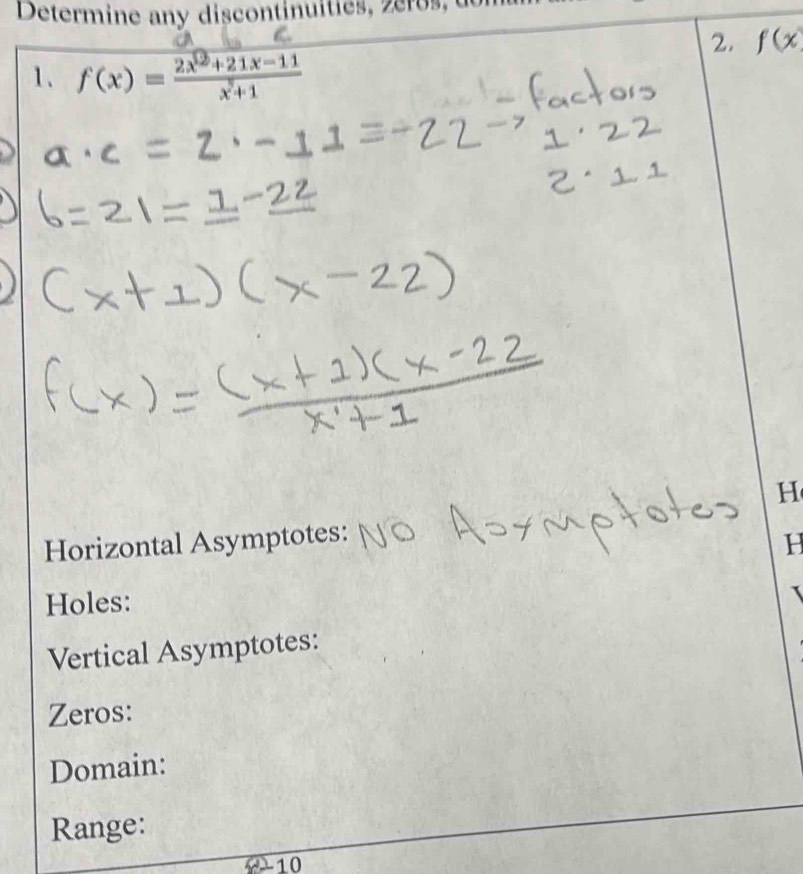 Determine any discontinuities, zeros,
a b c
1. f(x) = (2x²+21x−11)/(x+1)
2. f(x)
- factors
a·c = 2·-11 = -22 → 1·22
2·11
b=21= 1-22
(x+1)(x-22)
f(x) = (x+1)(x-22
x'+1
Horizontal Asymptotes: NO Asymptotes
Holes:
Vertical Asymptotes:
Zeros:
Domain:
Range:
-10